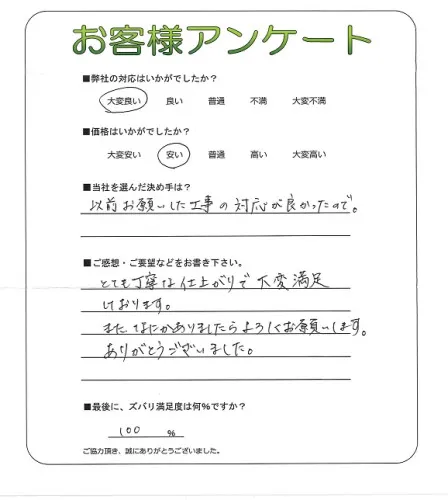 お客様アンケート
■弊社の対応はいかがでしたか?
大変良い 良い 普通 不満 大変不満
■価格はいかがでしたか?
大変安い 安い 普通 高い 大変高い
■当社を選んだ決め手は?
以前お願いした工事の対応が良かったので。
■ご感想・ご要望などをお書き下さい。
とても丁寧な仕上がりで大変満足
けおります。
またなにかありましたらよろしくお願いします。
ありがとうございました。
■最後に、ズバリ満足度は何%ですか?
100 %
ご協力頂き、誠にありがとうございました。